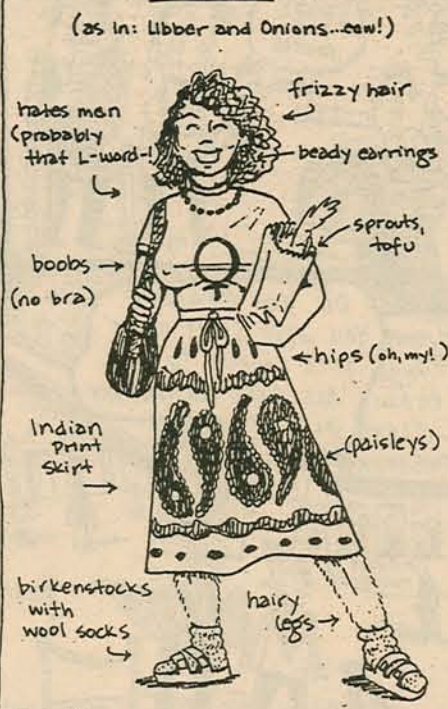 (as in: Libber and Onions...eew!)
frizzy hair
hates men
(probably
that L-word-!)
beady earrings
sprouts,
tofu
boobs
(no bra)
hips (oh, my!)
Indian
Print
Skirt
(paisleys)
birkenstocks
with
wool socks
hairy
legs